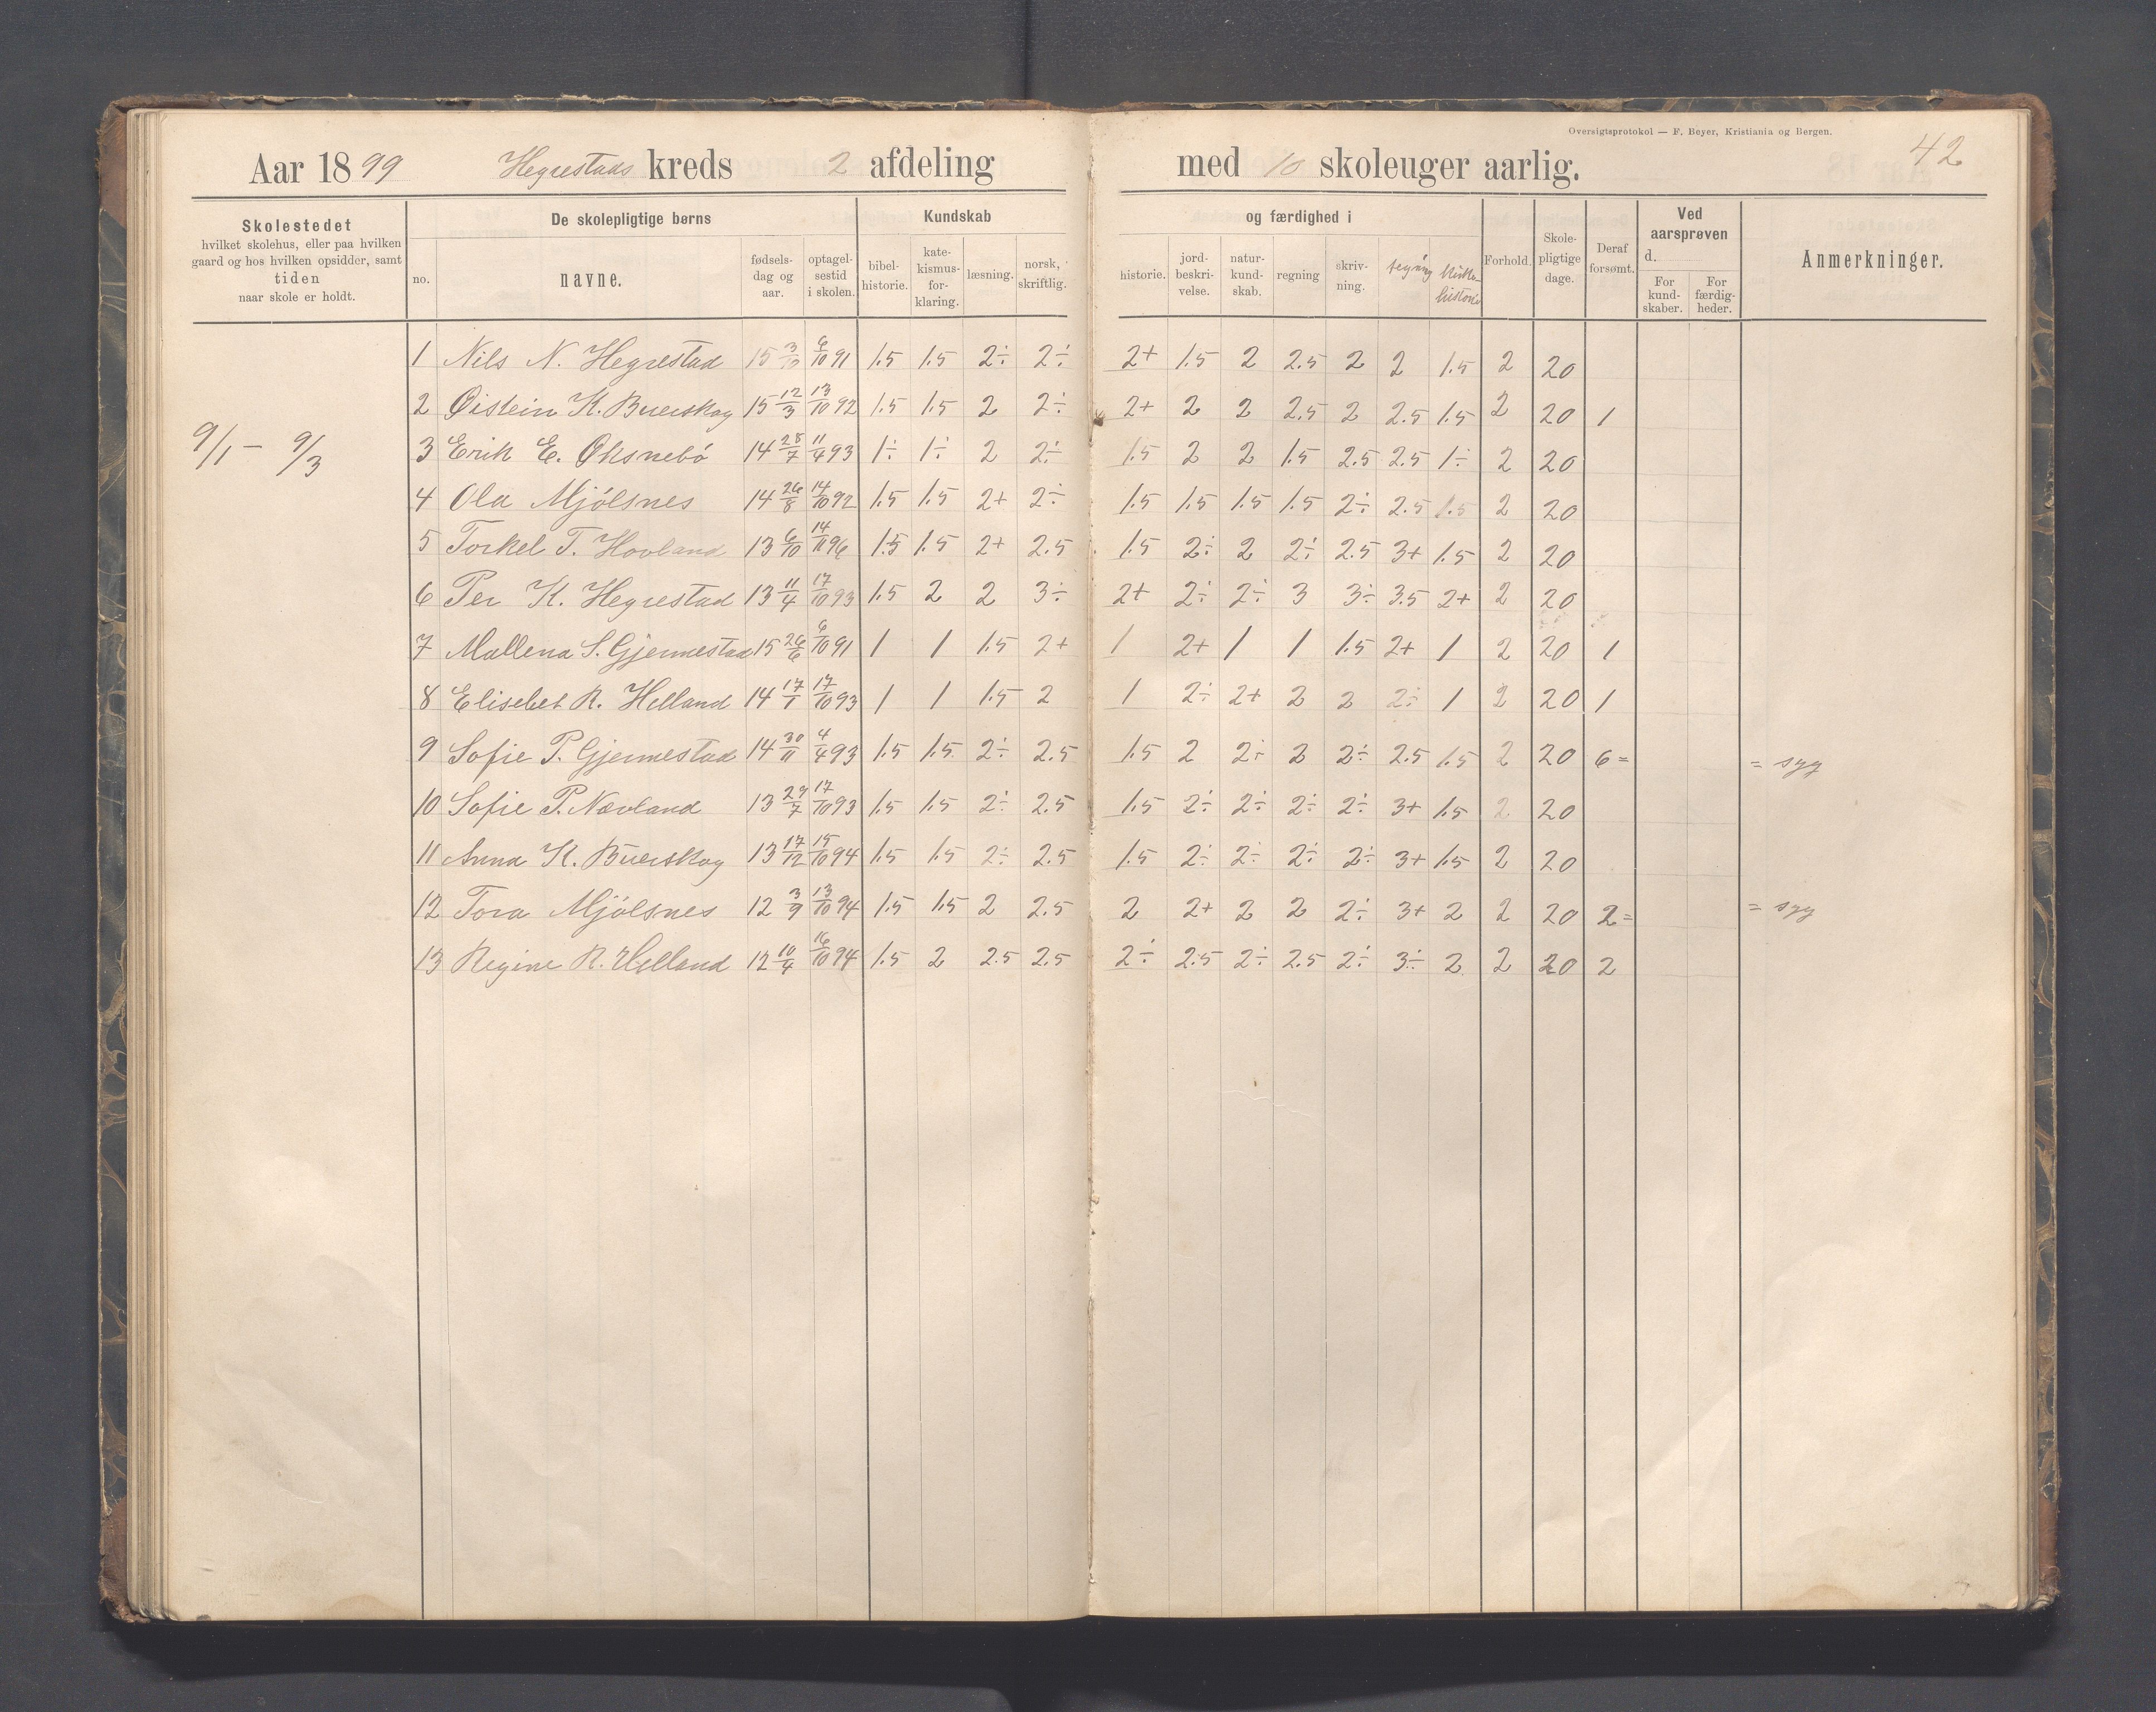 Oversigtsprotokol — F. Beyer, Kristiania og Bergen.
42
Aar 1899 Hegrestads kreds 2 afdeling med 10 skoleuger aarlig.
Skolestedet hvilket skolehus, eller paa hvilken gaard og hos hvilken opsidder, samt tiden naar skole er holdt.
De skolepligtige børns
no. navne. fødselsdag og aar. optagelsestid i skolen.
Kundskab og færdighed i
bibelhistorie. katekismusforklaring. læsning. norsk, skriftlig. historie. jordbeskrivelse. naturkundskab. regning skrivning. tegning kirkehistorie
Forhold. Skolepligtige dage. Deraf forsømt.
Ved aarsprøven d.
For kundskaber. For færdigheder.
Anmerkninger.
9/1 – 9/3
1 Nils N. Hegrestad 15 3/10 6/10 91 1.5 1.5 2÷ 2÷ 2+ 1.5 2 2.5 2 2 1.5 2 20
2 Øistein K. Buerskog 15 12/3 13/10 92 1.5 1.5 2 2÷ 2+ 2 2 2.5 2 2.5 1.5 2 20 1
3 Erik E. Øksnebø 14 28/7 11/4 93 1÷ 1÷ 2 2÷ 1.5 2 2 1.5 2.5 2.5 1÷ 2 20
4 Ola Mjølsnes 14 26/8 14/10 92 1.5 1.5 2+ 2÷ 1.5 1.5 1.5 1.5 2÷ 2.5 1.5 2 20
5 Torkel T. Hovland 13 6/10 14/11 96 1.5 1.5 2+ 2.5 1.5 2÷ 2 2÷ 2.5 3+ 1.5 2 20
6 Per K. Hegrestad 13 11/4 17/10 93 1.5 2 2 3÷ 2+ 2÷ 2÷ 3 3÷ 3.5 2+ 2 20
7 Mallena S. Gjermestad 15 26/6 6/10 91 1 1 1.5 2+ 1 2+ 1 1 1.5 2+ 1 2 20 1
8 Elisebet R. Helland 14 17/1 17/10 93 1 1 1.5 2 1 2÷ 2+ 2 2 2÷ 1 2 20 1
9 Sofie P. Gjermestad 14 30/11 4/4 93 1.5 1.5 2÷ 2.5 1.5 2 2÷ 2 2÷ 2.5 1.5 2 20 6= = syg
10 Sofie P. Nævland 13 29/7 17/10 93 1.5 1.5 2÷ 2.5 1.5 2÷ 2÷ 2÷ 2÷ 3+ 1.5 2 20
11 Anna K. Buerskog 13 17/12 15/10 94 1.5 1.5 2÷ 2.5 1.5 2÷ 2÷ 2÷ 2÷ 3+ 1.5 2 20
12 Tora Mjølsnes 12 3/9 13/10 94 1.5 1.5 2 2.5 2 2+ 2 2 2÷ 3+ 2 2 20 2= = syg
13 Regine R. Helland 12 10/4 16/10 94 1.5 2 2.5 2.5 2÷ 2.5 2÷ 2.5 2÷ 3÷ 2 2 20 2